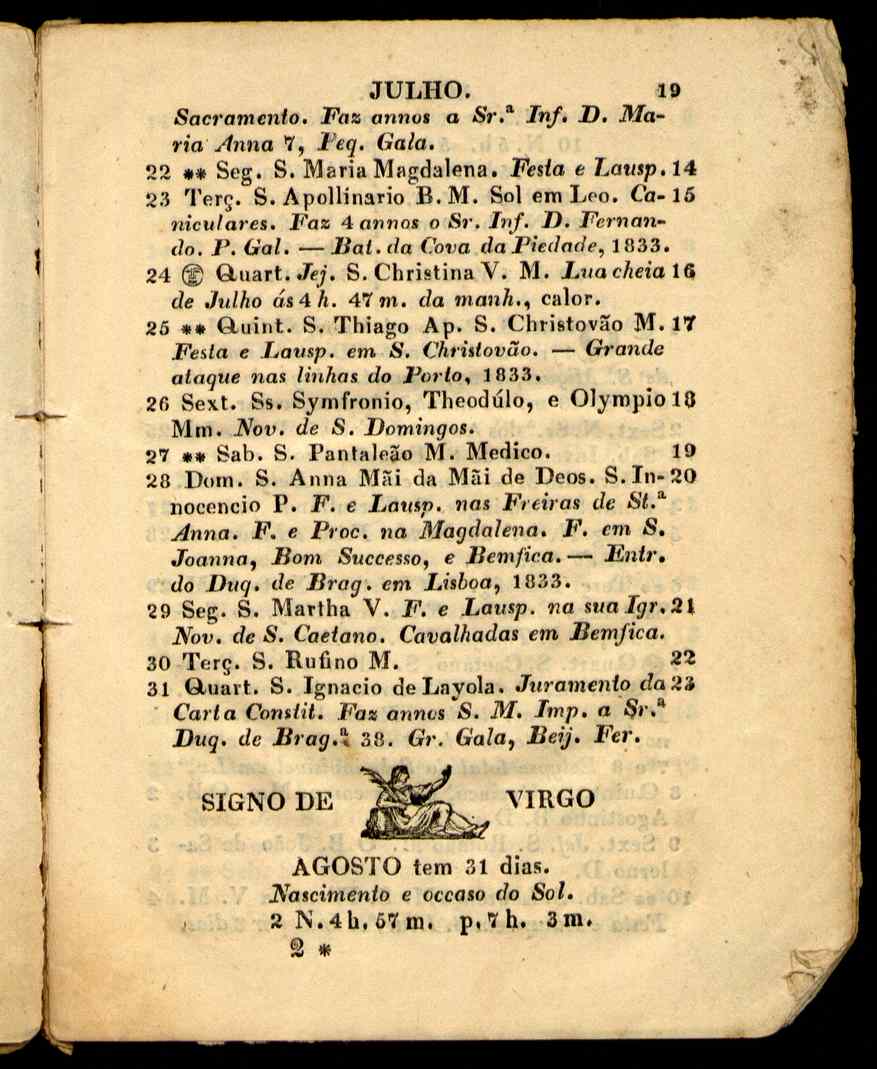 JULHO. 19
Sacramento. Faz annos a Sr.ª Inf. D. Ma-
ria Anna 7, Peq. Gala.
22 ** Seg. S. Maria Magdalena. Festa e Lausp. 14
23 Terç. S. Apollinario B. M. Sol em Leo. Ca- 15
niculares. Faz 4 annos o Sr. Inf. D. Fernan-
do. P. Gal. — Bat. da Cova da Piedade, 1833.
24 Quart. Jej. S. Christina V. M. Lua cheia 16
de Julho ás 4 h. 47 m. da manh., calor.
25 ** Quint. S. Thiago Ap. S. Christovão M. 17
Festa e Lausp. em S. Christovão. — Grande
ataque nas linhas do Porto, 1833.
26 Sext. Ss. Symfronio, Theodúlo, e Olympio 18
Mm. Nov. de S. Domingos.
27 ** Sab. S. Pantaleão M. Medico. 19
28 Dom. S. Anna Mãi da Mãi de Deos. S. In- 20
nocencio P. F. e Lausp. nas Freiras de St.ª
Anna. F. e Proc. na Magdalena. F. em S.
Joanna, Bom Successo, e Bemfica. — Entr.
do Duq. de Brag. em Lisboa, 1833.
29 Seg. S. Martha V. F. e Lausp. na sua Igr. 21
Nov. de S. Caetano. Cavalhadas em Bemfica.
30 Terç. S. Rufino M. 22
31 Quart. S. Ignacio de Layola. Juramento da 23
Carta Constit. Faz annos S. M. Imp. a Sr.ª
Duq. de Brag.ª 38. Gr. Gala, Beij. Fer.
SIGNO DE VIRGO
AGOSTO tem 31 dias.
Nascimento e occaso do Sol.
2 N. 4 h. 57 m. p. 7 h. 3 m.
2 *